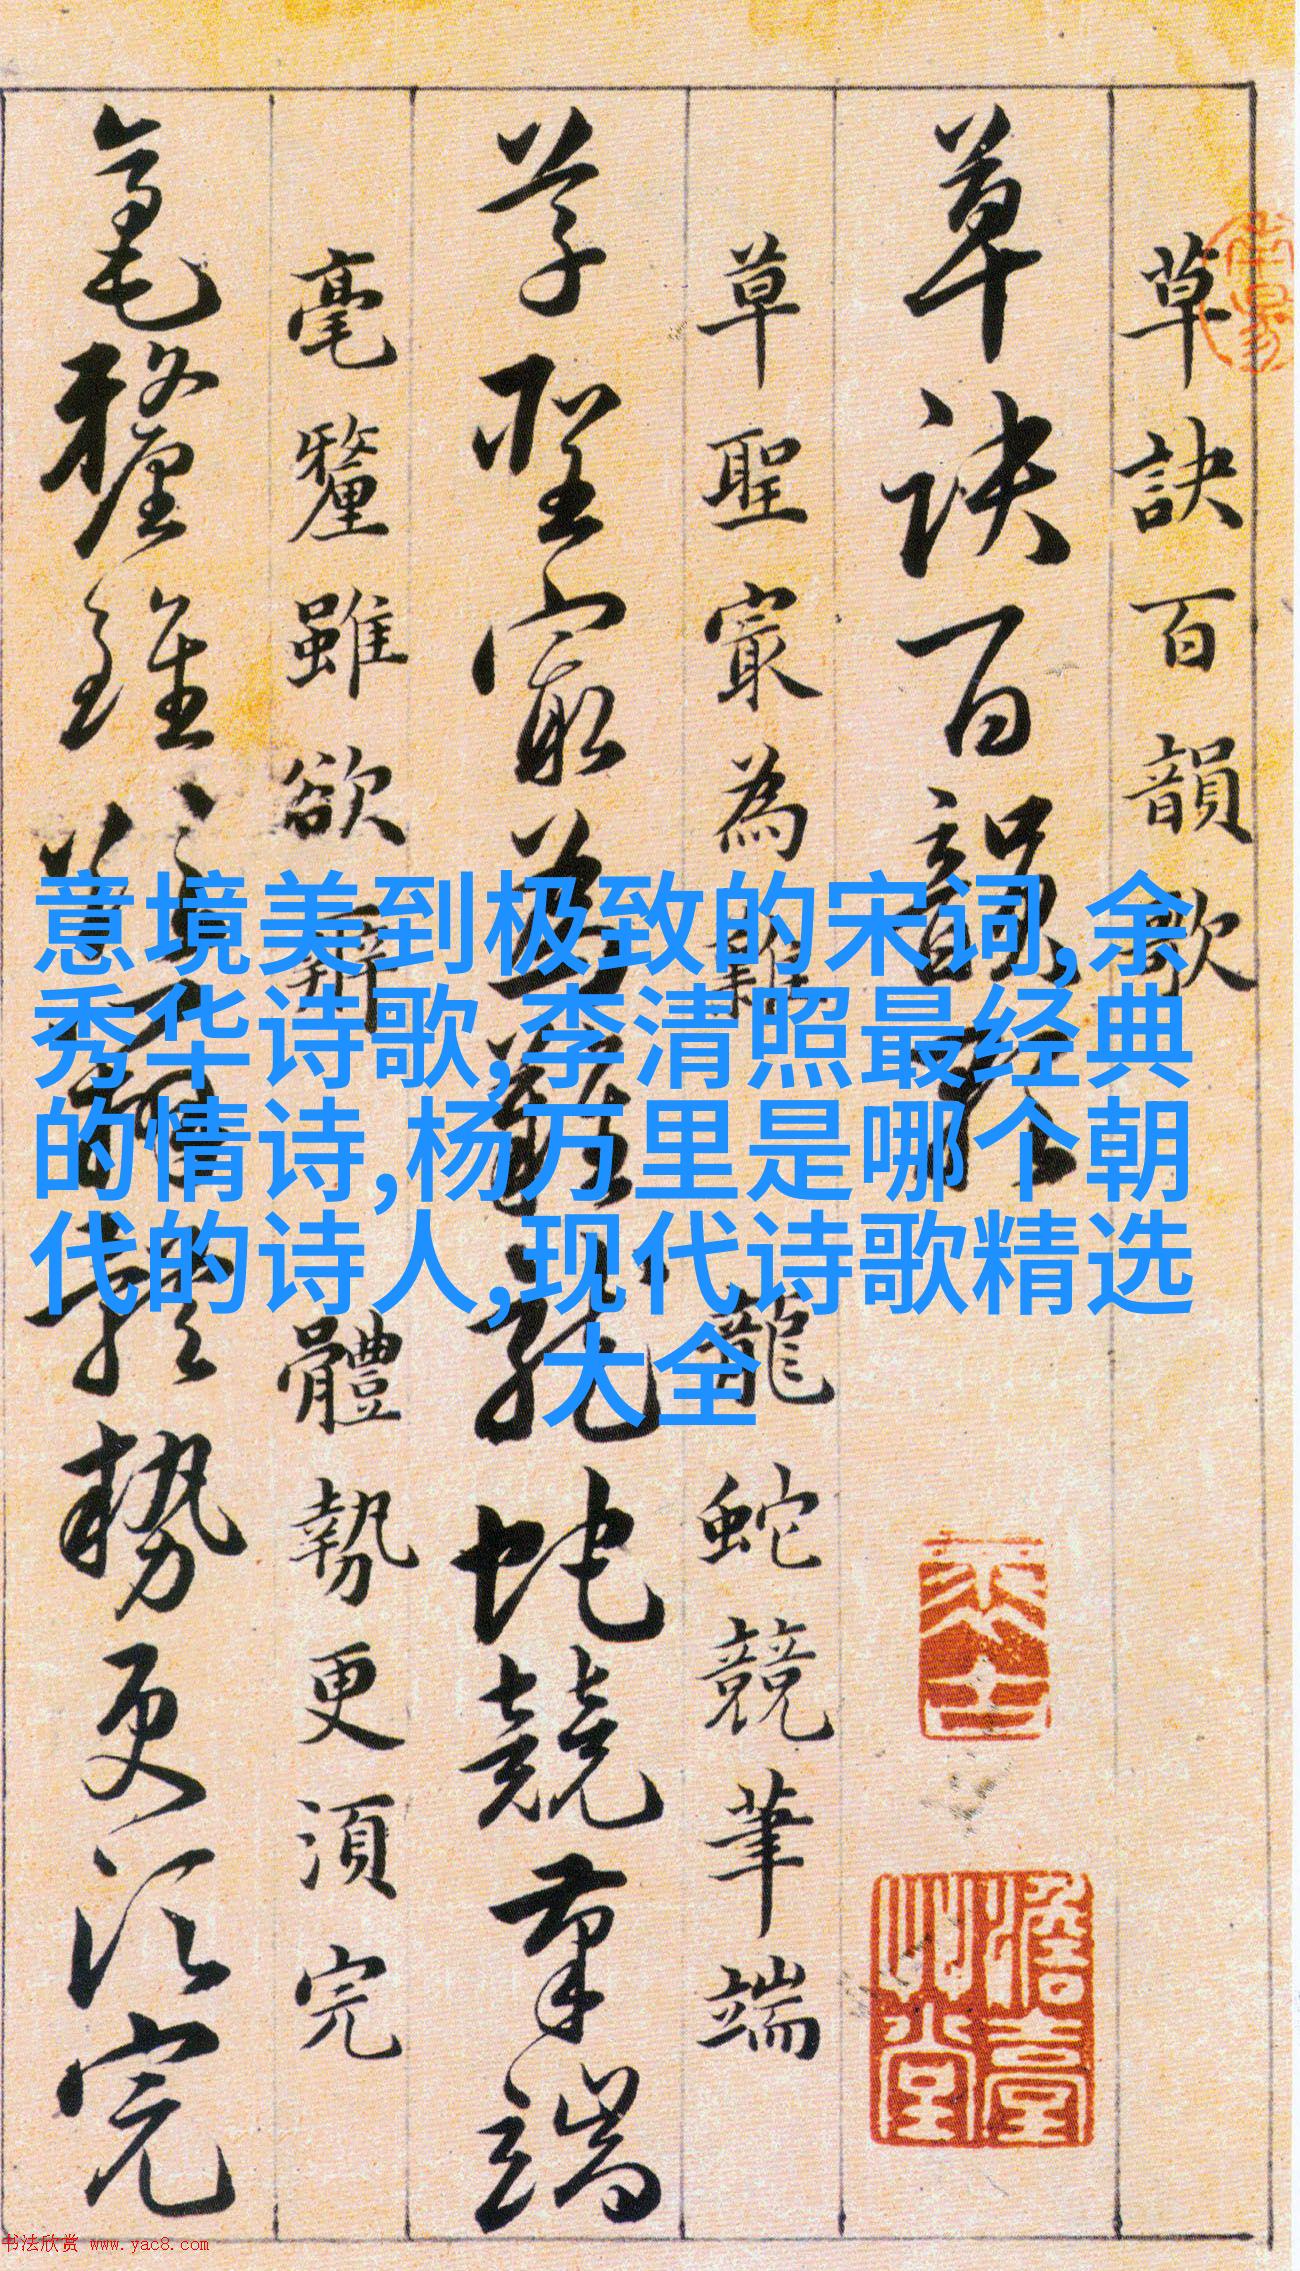 草訣百韻歌
草訣百韻歌
草聖寂為難龍蛇競筆端
草聖寂為難龍蛇競筆端
毫釐雖欲辭體勢更須完
毫釐雖欲辭體勢更須完
意境美到极致的宋词,余
秀华诗歌,李清照最经典
的情诗,杨万里是哪个朝
代的诗人,现代诗歌精选
大全
书法欣赏 www.yac8.com